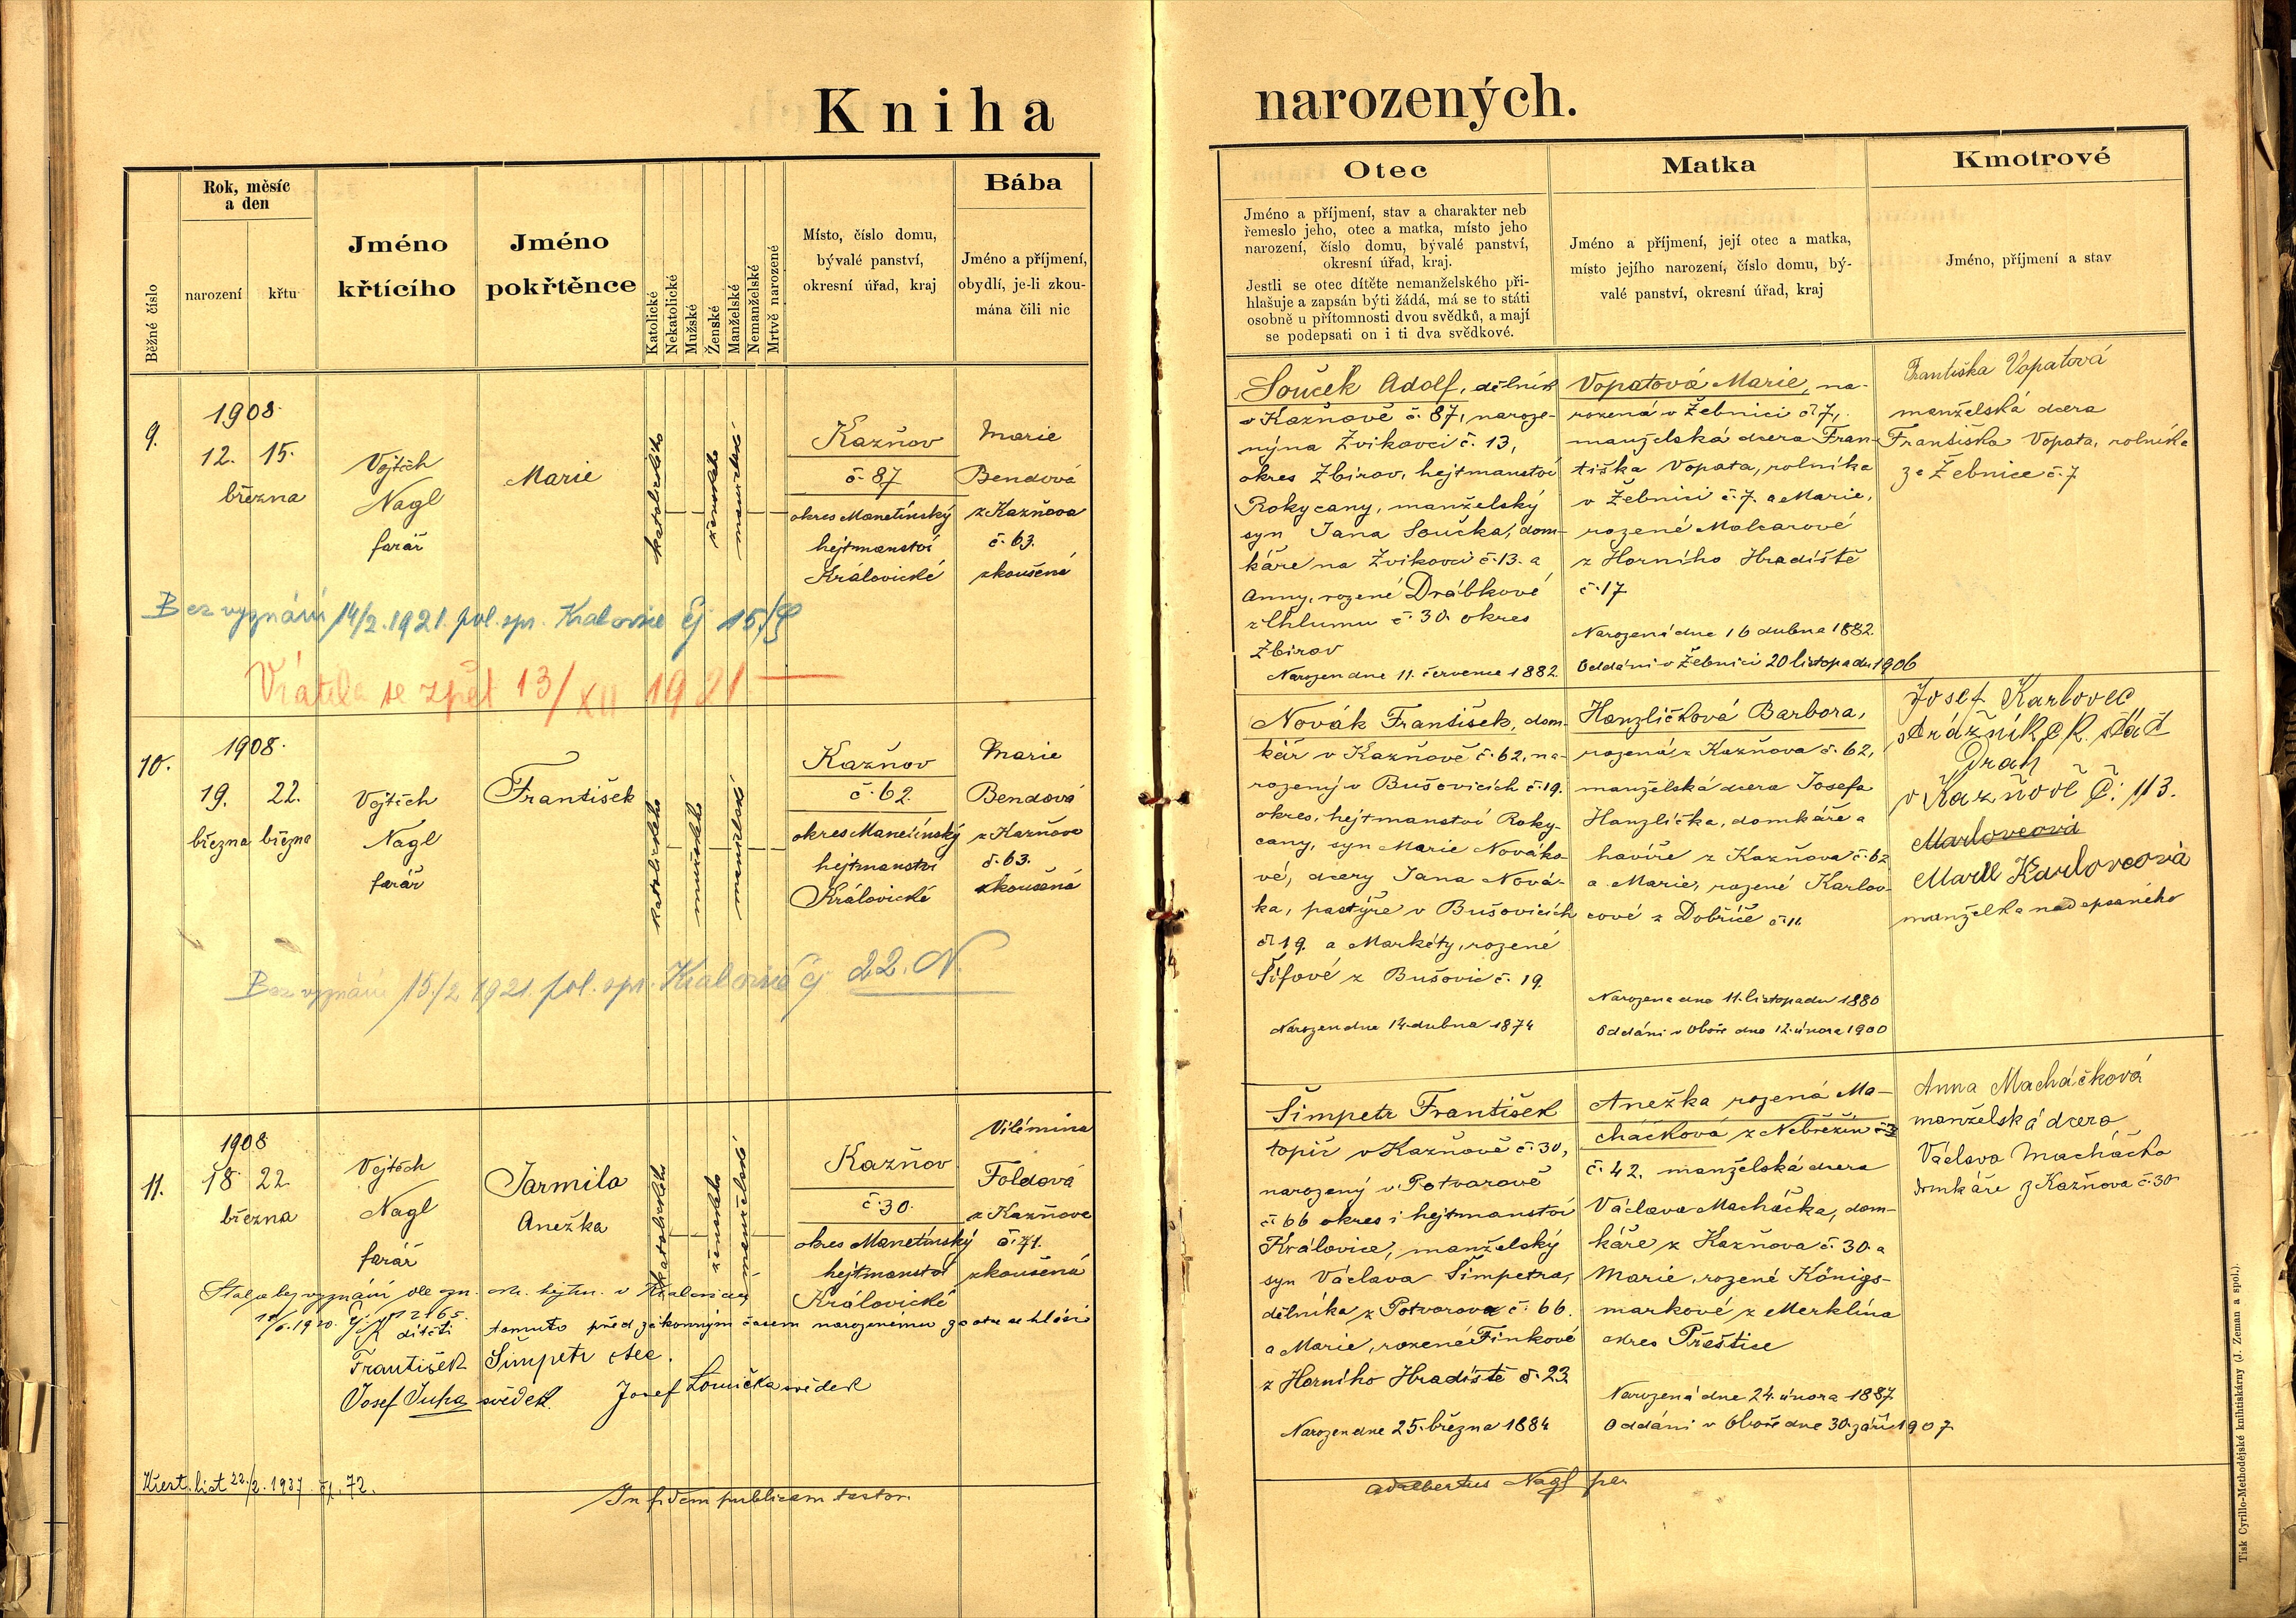 Kniha narozených.
Běžné číslo
Rok, měsíc
a den
narození
křtu
Jméno
křtícího
Jméno
pokřtěnce
Katolické
Nekatolické
Mužské
Ženské
Manželské
Nemanželské
Mrtvě narozené
Místo, číslo domu,
bývalé panství,
okresní úřad, kraj
Bába
Jméno a příjmení,
obydlí, je-li zkou-
mána čili nic
Otec
Jméno a příjmení, stav a charakter neb
řemeslo jeho, otec a matka, místo jeho
narození, číslo domu, bývalé panství,
okresní úřad, kraj.
Jestli se otec dítěte nemanželského při-
hlašuje a zapsán býti žádá, má se to státi
osobně u přítomnosti dvou svědků, a mají
se podepsati on i ti dva svědkové.
Matka
Jméno a příjmení, její otec a matka,
místo jejího narození, číslo domu, bý-
valé panství, okresní úřad, kraj
Kmotrové
Jméno, příjmení a stav
9.
1908.
12. 15.
března
Vojtěch
Nagl
farář
Marie
katolického
ženského
manželské
Kazňov
č. 87
okres Manetínský
hejtmanství
Královické
Marie
Bendová
z Kazňova
č. 63.
zkoušená
Souček Adolf, dělník
v Kazňově č. 87, naroze-
ný na Zvikovci č. 13,
okres Zbirov, hejtmanství
Rokycany, manželský
syn Jana Součka, dom-
káře na Zvikovci č. 13. a
Anny, rozené Drábkové
z Chlumu č. 30. okres
Zbirov
Narozen dne 11. července 1882.
Vopatová Marie, na-
rozená v Žebnici č. 7,
manželská dcera Fran-
tiška Vopata, rolníka
v Žebnici č. 7. a Marie,
rozené Molcarové
z Horního Hradiště
č. 17
Narozená dne 16 dubna 1882.
Oddáni v Žebnici 20 listopadu 1906
Františka Vopatová
manželská dcera
Františka Vopata, rolníka
ze Žebnice č. 7
Bez vyznání 14/2. 1921. pol. spr. Kralovice čj 15./
Vrátila se zpět 13/XII 1921
10.
1908.
19. 22.
března března
Vojtěch
Nagl
farář
František
katolického
mužského
manželské
Kazňov
č. 62.
okres Manetínský
hejtmanství
Královické
Marie
Bendová
z Kazňova
č. 63.
zkoušená
Novák František, dom-
kář v Kazňově č. 62, na-
rozený v Bušovicích č. 19.
okres, hejtmanství Roky-
cany, syn Marie Nováko-
vé, dcery Jana Nová-
ka, pastýře v Bušovicích
č. 19. a Markéty, rozené
Šífové z Bušovic č. 19.
Narozen dne 14. dubna 1874
Hanzlíčková Barbora,
rozená z Kazňova č. 62,
manželská dcera Josefa
Hanzlíčka, domkáře a
havíře z Kazňova č. 62
a Marie, rozené Karlov-
cové z Dobříče č. 11.
Narozena dne 11. listopadu 1880
Oddáni v Oboře dne 12. února 1900
Josef Karlovec
strážník c. k. stát
Drah
v Kazňově Č. 113.
Marie Karlovcová
manželka nadepsaného
Bez vyznání 15./2 1921. pol. spr. Kralovice čj 22. N.
11.
1908
18. 22.
března
Vojtěch
Nagl
farář
Jarmila
Anežka
katolického
ženského
manželské
Kazňov
č. 30.
okres Manetínský
hejtmanství
Královické
Vilémina
Foldová
z Kazňova
č. 71.
zkoušená
Šimpetr František
topič v Kazňově č. 30,
narozený v Potvorově
č. 66 okres i hejtmanství
Královice, manželský
syn Václava Šimpetra,
dělníka z Potvorova č. 66.
a Marie, rozené Finkové
z Horního Hradiště č. 23.
Narozen dne 25. března 1884
Anežka rozená Ma-
cháčková z Nebřezin
č. 42. manželská dcera
Václava Macháčka, dom-
káře z Kazňova č. 30. a
Marie, rozené Königs-
markové z Merklína
okres Přeštice
Narozená dne 24. února 1887
Oddáni v Oboře dne 30. září 1907
Anna Macháčková
manželská dcera
Václava Macháčka
domkáře z Kazňova č. 30
Stala se bez vyznání dle ozn. okr. hejtm. v Kralovicích
1920. čj. 2165.
K dítěti tomuto před zákonným časem narozenému za otce se hlásí
František Šimpetr otec.
Josef Tupa svědek. Josef Lomička svědek
Křest. list 22./2. 1937 čj. 72.
In fidem publicam testor.
Adalbertus Nagl
Tisk Cyrillo-Methodějské knihtiskárny (J. Zeman a spol.).